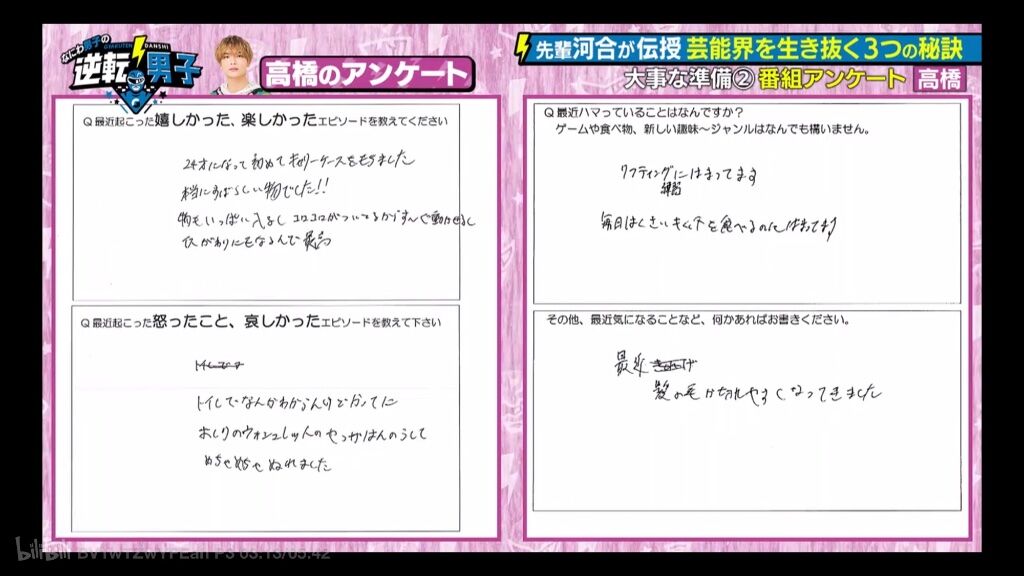 なにわ男子の
GYAKUTEN DANSHI
逆転男子
高橋のアンケート
先輩河合が伝授 芸能界を生き抜く3つの秘訣
大事な準備② 番組アンケート 高橋
Q 最近起こった嬉しかった、楽しかったエピソードを教えてください
24才になって初めてキャリーケースをもちました
本当にすばらしい物でした!!
物もいっぱい入るし コロコロがついてるからすんごく動かせるし
いすがわりにもなるんで最高
Q 最近起こった怒ったこと、哀しかったエピソードを教えて下さい
トイレでなんかわからんけどかってに
おしりのウォシュレットの
めちゃめちゃぬれました
Q 最近ハマっていることはなんですか?
ゲームや食べ物、新しい趣味~ジャンルはなんでも構いません。
リフティングにはまってます
練習
毎日はくさいキムチを食べるのにはまってます
その他、最近気になることなど、何かあればお書きください。
最近
髪の毛が切れやすくなってきました
bilibili